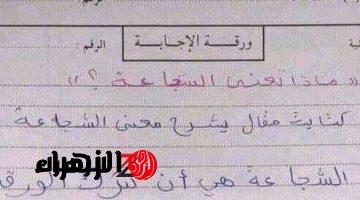 الرقم :
ورقة الإجابة
الرقم :
« ماذا تعني الشجاعة ؟ »
كتابة مقال يشرح معنى الشجاعة
الزهراء
الشجاعة هي أن تترك الورقة